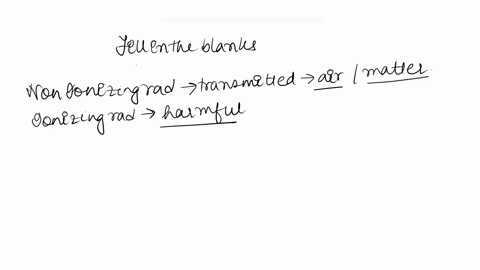 Fill in the blanks
Non Ionizing rad → transmitted → air / matter.
Ionizing rad → harmful